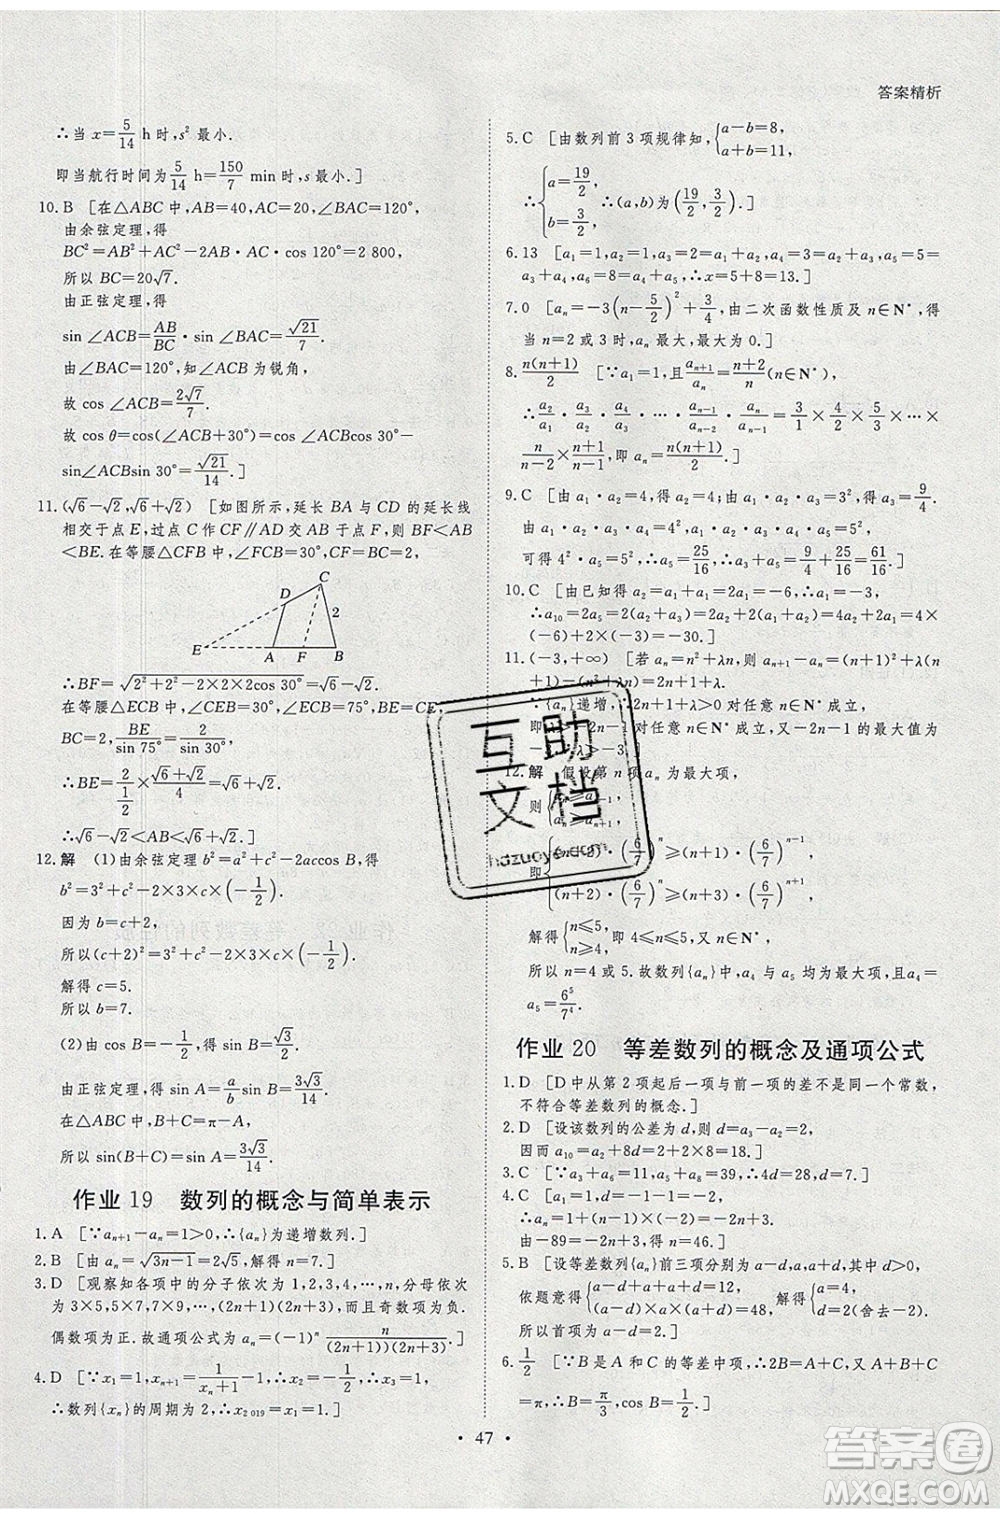 答案精析
∴当 x=5/14 h 时,s²最小.
即当航行时间为 5/14 h=150/7 min 时,s最小.]
10.B [在△ABC中,AB=40,AC=20,∠BAC=120°,
由余弦定理,得
BC²=AB²+AC²-2AB·AC·cos 120°=2 800,
所以 BC=20√7.
由正弦定理,得
sin∠ACB=AB/BC·sin∠BAC=√21/7.
由∠BAC=120°,知∠ACB为锐角,
故 cos∠ACB=2√7/7.
故 cos θ=cos(∠ACB+30°)=cos∠ACBcos 30°-
sin∠ACBsin 30°=√21/14.]
11.(√6-√2,√6+√2) [如图所示,延长BA与CD的延长线
相交于点E,过点C作CF∥AD交AB于点F,则BF<AB
<BE.在等腰△CFB中,∠FCB=30°,CF=BC=2,
C
D
2
E
A
F
B
∴BF=√(2²+2²-2×2×2cos 30°)=√6-√2.
在等腰△ECB中,∠CEB=30°,∠ECB=75°,BE=CE,
BC=2,BE/sin 75°=2/sin 30°,
∴BE=2/(1/2)×(√6+√2)/4=√6+√2.
∴√6-√2<AB<√6+√2.]
12.解 (1)由余弦定理 b²=a²+c²-2accos B,得
b²=3²+c²-2×3×c×(-1/2).
因为 b=c+2,
所以(c+2)²=3²+c²-2×3×c×(-1/2).
解得 c=5.
所以 b=7.
(2)由 cos B=-1/2,得 sin B=√3/2.
由正弦定理,得 sin A=a/b sin B=3√3/14.
在△ABC中,B+C=π-A,
所以 sin(B+C)=sin A=3√3/14.
作业 19 数列的概念与简单表示
1.A [∵aₙ₊₁-aₙ=1>0,∴{aₙ}为递增数列.]
2.B [由 aₙ=√(3n-1)=2√5,解得 n=7.]
3.D [观察知各项中的分子依次为1,2,3,4,…,n,分母依次
为3×5,5×7,7×9,…,(2n+1)(2n+3),而且奇数项为负.
偶数项为正.故通项公式 aₙ=(-1)ⁿ n/((2n+1)(2n+3)).]
4.D [∵x₁=1,xₙ₊₁=1/(xₙ+1)-1,∴x₂=-1/2,x₃=1,
∴数列{xₙ}的周期为2,∴x₂₀₁₉=x₁=1.]
5.C [由数列前3项规律知,{a-b=8, a+b=11,
∴{a=19/2, b=3/2, ∴(a,b)为(19/2,3/2).]
6.13 [a₁=1,a₂=1,a₃=1+1=2,a₄=1+2=3,a₅=2+3=5,
a₆=3+5=8,a₇=x=a₅+a₆,∴x=5+8=13.]
7.0 [aₙ=-3(n-5/2)²+3/4,由二次函数性质及n∈N*,得
当 n=2 或 3 时,aₙ最大,最大为0.]
8.n(n+1)/2 [∵a₁=1,且aₙ₊₁/aₙ=(n+2)/n(n∈N*),
∴a₂/a₁·a₃/a₂·a₄/a₃·…·aₙ₋₁/aₙ₋₂·aₙ/aₙ₋₁=3/1×4/2×5/3×…×
n/(n-2)×(n+1)/(n-1),即 aₙ=n(n+1)/2.]
9.C [由 a₁·a₂·a₃=3²,a₁·a₂=2²,得 a₃=9/4.
由 a₁·a₂·a₃·a₄=4²,a₁·a₂·a₃·a₄·a₅=5²,
可得 4²·a₅=5²,∴a₅=25/16,∴a₃+a₅=9/4+25/16=61/16.]
10.C [由已知得 a₂=a₁+a₁=2a₁=-6,∴a₁=-3.
∴a₁₀=2a₅=2(a₂+a₃)=2a₂+2(a₁+a₂)=4a₂+2a₁=4×
(-6)+2×(-3)=-30.]
11.(-3,+∞) [若 aₙ=n²+λn,则 aₙ₊₁-aₙ=(n+1)²+λ(n
+1)-n²-λn=2n+1+λ,
∵{aₙ}递增,∴2n+1+λ>0 对任意 n∈N*成立,
即λ>-2n-1 对任意 n∈N*成立,又-2n-1的最大值为
-3,∴λ>-3.]
12.解 假设第 n 项 aₙ 为最大项,
则{aₙ≥aₙ₋₁, aₙ≥aₙ₊₁,
即{(n+2)·(6/7)ⁿ≥(n+1)·(6/7)ⁿ⁻¹,
(n+2)·(6/7)ⁿ≥(n+3)·(6/7)ⁿ⁺¹,
解得{n≤5, n≥4, 即4≤n≤5,
所以 n=4 或 5.故数列{aₙ}中,a₄与a₅均为最大项,且a₄=
a₅=6⁵/7⁴.
作业 20 等差数列的概念及通项公式
1.D [D中从第2项起后一项与前一项的差不是同一个常数,
不符合等差数列的概念.]
2.D [设该数列的公差为d,则 d=a₃-a₂=2,
因而 a₁₀=a₂+8d=2+8×2=18.]
3.C [∵a₁₆=a₁+15d,∴47=2+15d,∴d=3.]
4.C [∵a₁=1,d=-1-1=-2,
∴aₙ=1+(n-1)·(-2)=-2n+3.
由-89=-2n+3,得 n=46.]
5.B [设等差数列{aₙ}前三项分别为 a-d,a,a+d,d>0,
依题意得{a-d+a+a+d=12, (a-d)a(a+d)=48, 解得{a=4, d=2(舍去-2).
所以首项为 a-d=2.]
6.1/2 [∵B是A和C的等差中项,∴2B=A+C,又A+B+C=
π,∴B=π/3,∴cos B=1/2.]
• 47 •
互助文档
hdzuoye.com
答案圈
MXQE.COM